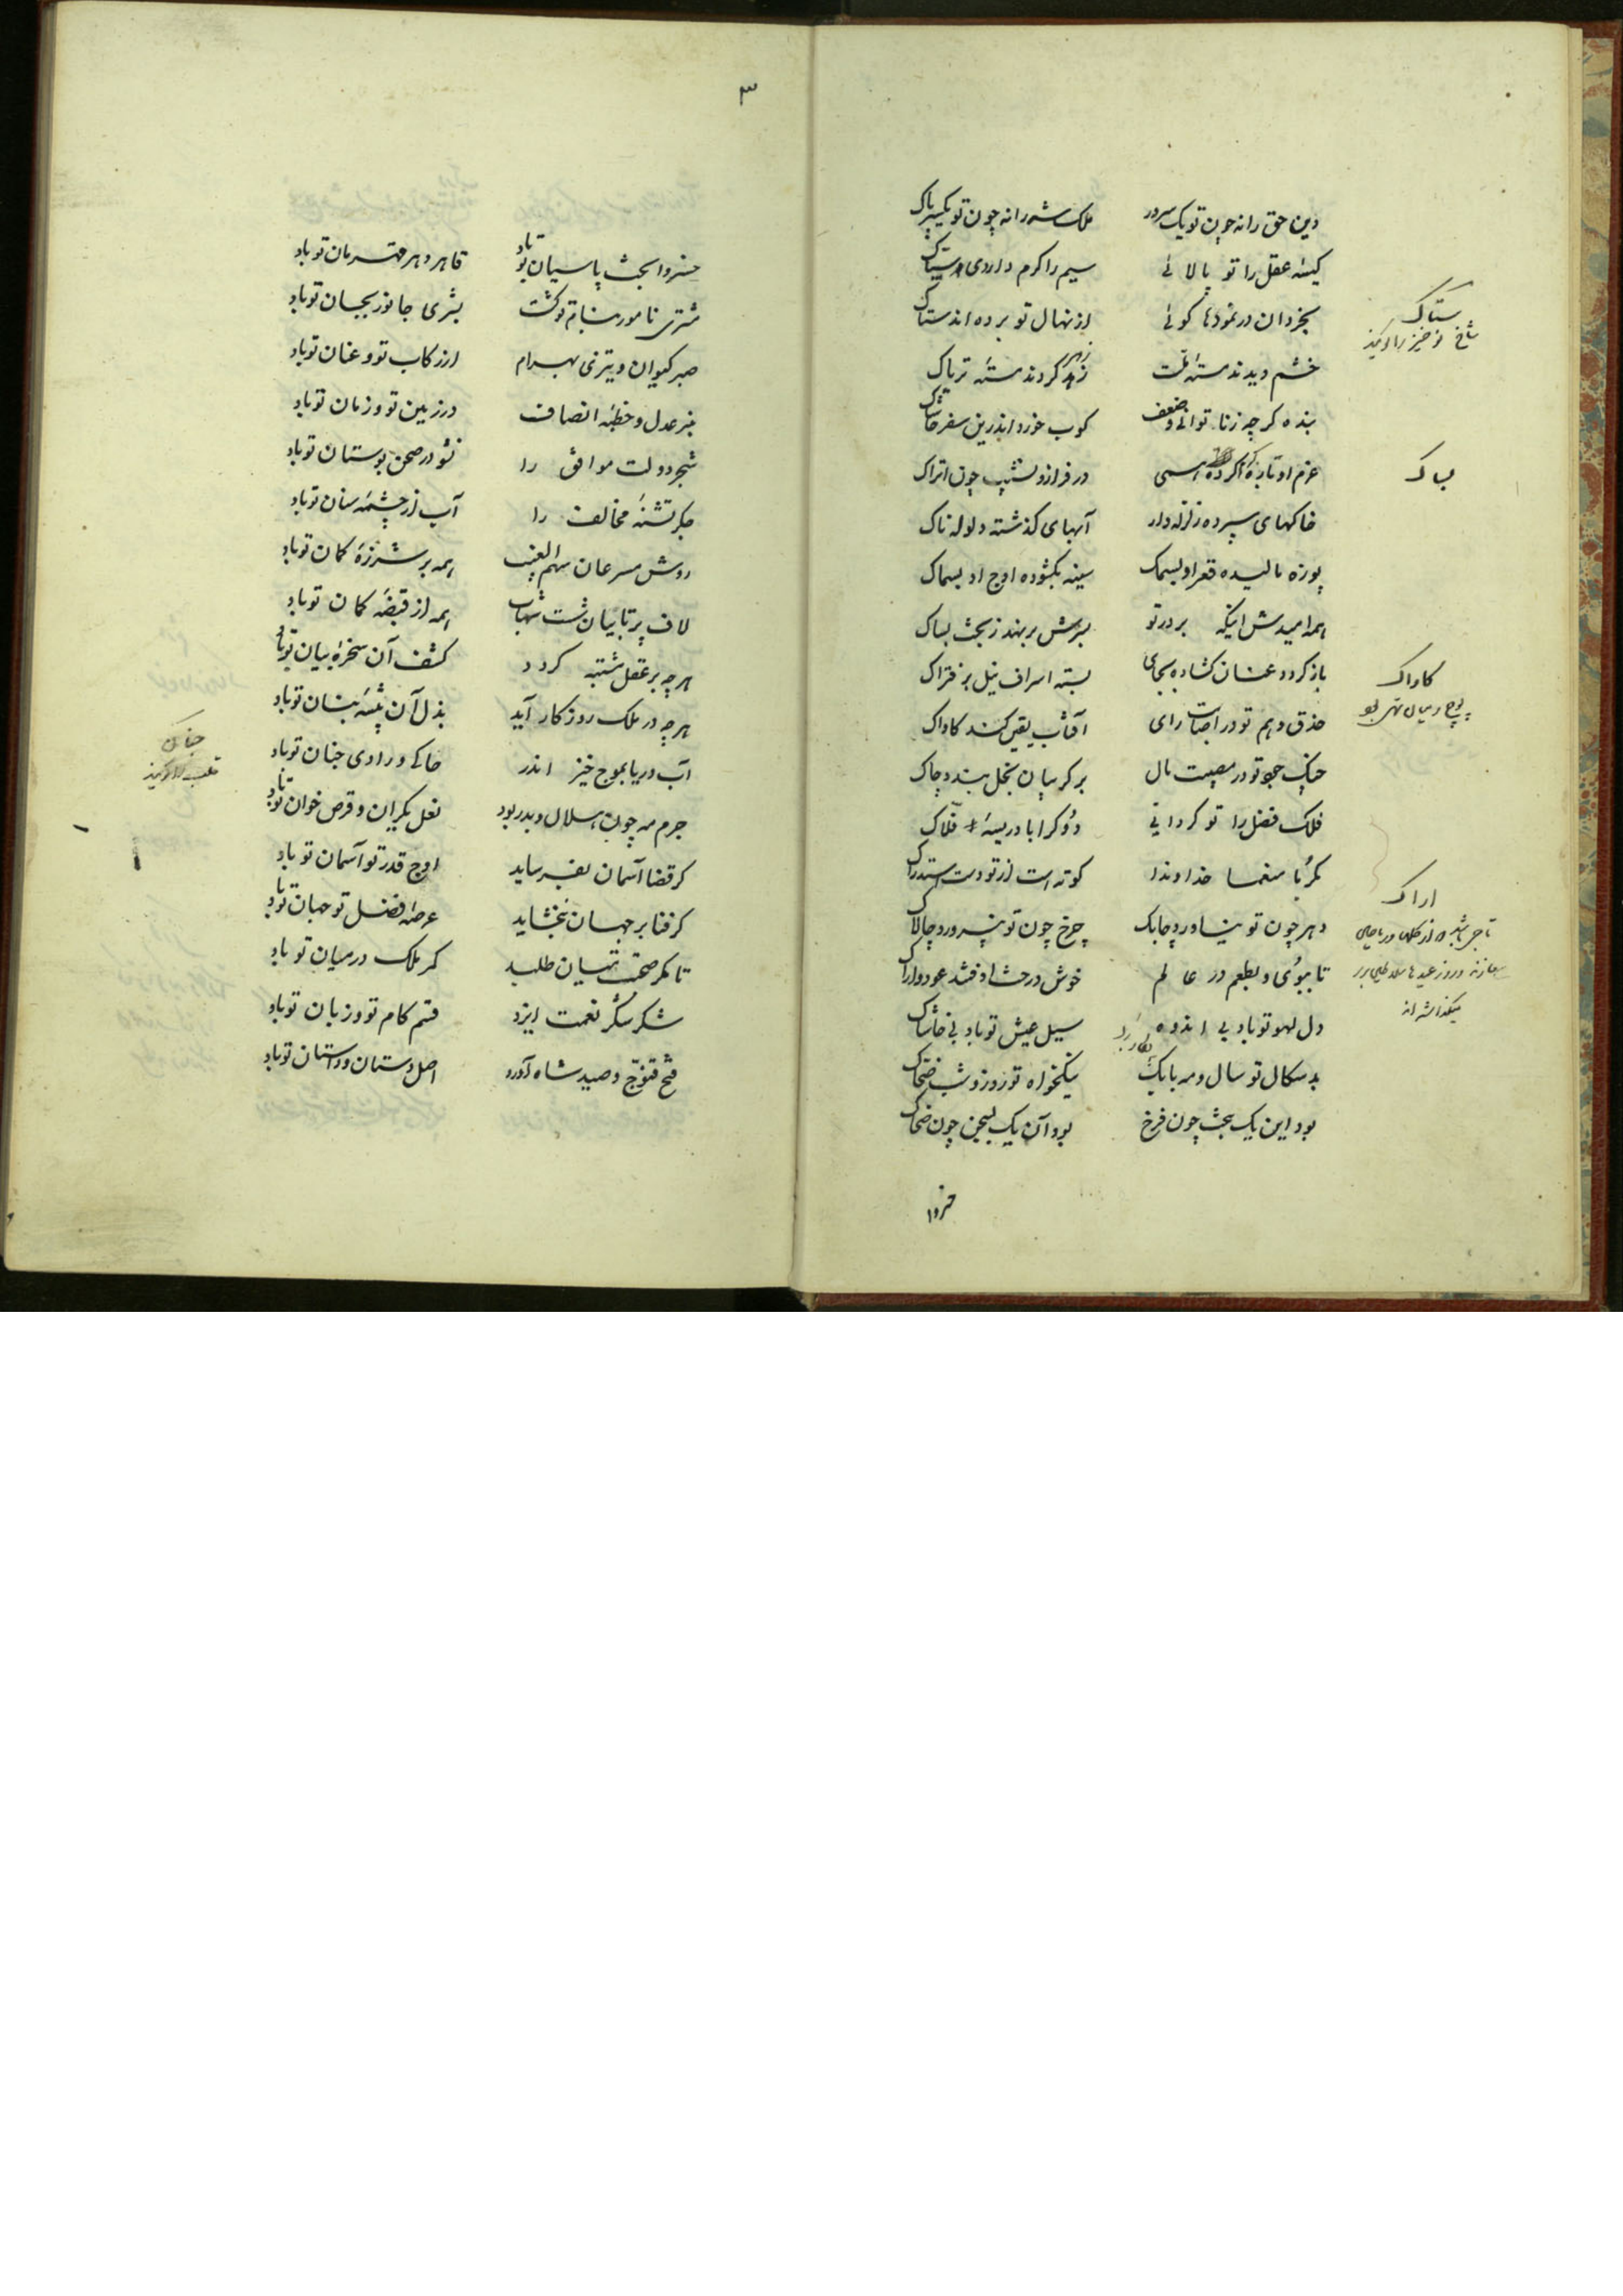 دین حق را نه چون تو یک سرور ملک شه را نه چون تو یکسر پاک
کیسه عقل را تو پالائی سیم را کرم داردی
بخردان در نمودها کوئی از نهال تو برده اند ستاک
خشم دیدند مسته کردند مسته تریاک
بنده کرچه زناتوانی وضعف کوب خورد اندرین سفر خاشاک
عزم او تازه کرده در فراز و نشیب چون اتراک
خاکهای سپرده زلزله دار آبهای کذشته ولوله ناک
پوزه مالیده قعر او بسمک سینه بکشوده اوج او بسماک
همه امیدش اینکه بر در تو بسرش بر نهند ز بخت بساک
باز کردد عنان کشاده بجای بسته اسراف نیل بر فتراک
حذق وهم تو در اصابت رای آفتاب یقین کند کاواک
چنک جود تو در مصیبت مال بر کریبان بخل بندد چاک
فلک فضل را تو کردانی دوک را بادریسه فلاک
مکرما منعما خداوندا کوته است از تو دست استدراک
دهر چون تو نیاورد چابک چرخ چون تو نپرورد چالاک
تا ببوی و بطعم در عالم خوش در حشا وفتد عود و اراک
دل لهو تو باد بی اندوه سیل عیش تو باد بی خاشاک
بد سکال تو سال و مه نیکخواه تو روز و شب ضحاک
بود این یک ببخت چون فرخ بود آن یک بسجن چون ضحاک
خسروا
ستاک
شاخ نو خیز را کویند
بساک
کاواک
پوچ و میان تهی
اراک
میکذاشته اند
۳
خسروا بخت پاسبان تو باد قاهر دهر قهرمان تو باد
مشتری نامور بنام تو کشت بشری جانور بجان تو باد
صبر کیوان و تیزی بهرام از رکاب تو و عنان تو باد
منبر عدل و خطبه انصاف در زمین تو و زمان تو باد
شجر دولت موافق را نشو در صحن بوستان تو باد
جکر تشنه مخالف را آب از چشمه سنان تو باد
روش مسرعان سهم الغیب همه بر شرزه کمان تو باد
لاف پرتابیان شست شهاب همه از قبضه کمان تو باد
هرچه بر عقل مشتبه کردد کشف آن سخره بیان تو باد
هرچه در ملک روزکار آید بذل آن پیشه بنان تو باد
آب دریا بموج خیز اندر خاکی و رادی جنان تو باد
جرم مه چون هلال و بدر بود نعل یکران و قرص خوان تو باد
کر قضا آسمان بفرساید اوج قدر تو آسمان تو باد
کر فنا بر جهان نبخشاید عرصه فضل تو جهان تو باد
تا کمر صحبت میان طلبد کمر ملک در میان تو باد
شکر شکر نعمت ایزد قسم کام تو و زبان تو باد
فتح قنوج و صید شاه آورد اصل دستان و داستان تو باد
جنان
قلب را کویند